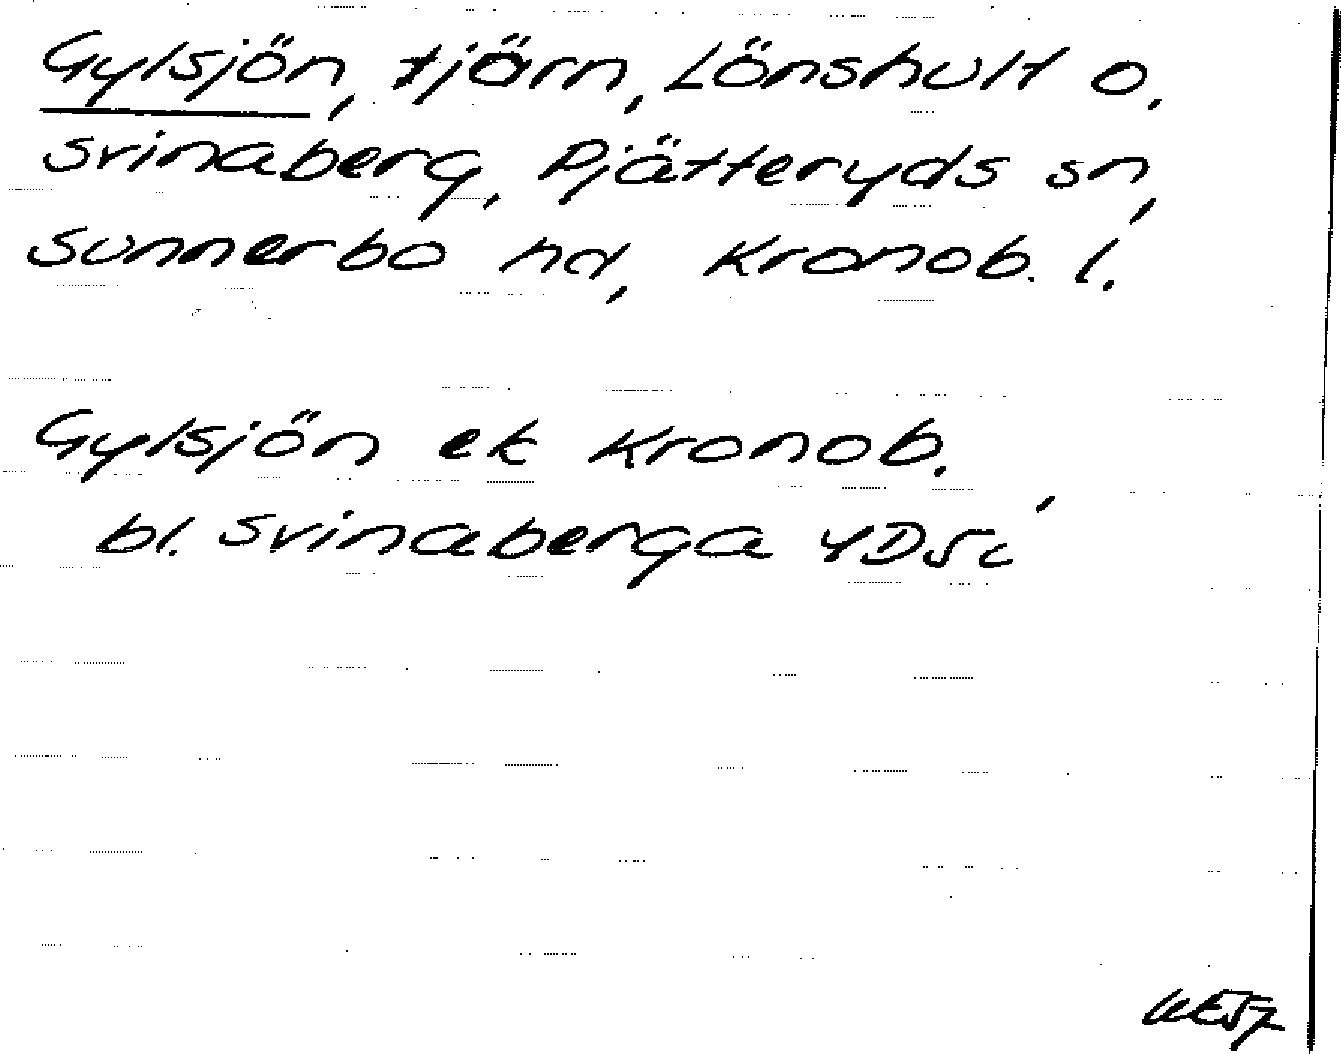 Gylsjön, tjärn, Lönshult o.
Svinaberg, Pjätteryds sn,
Sunnerbo hd, Kronob. l.
Gylsjön ek Kronob.
bl. Svinaberga 4D5c